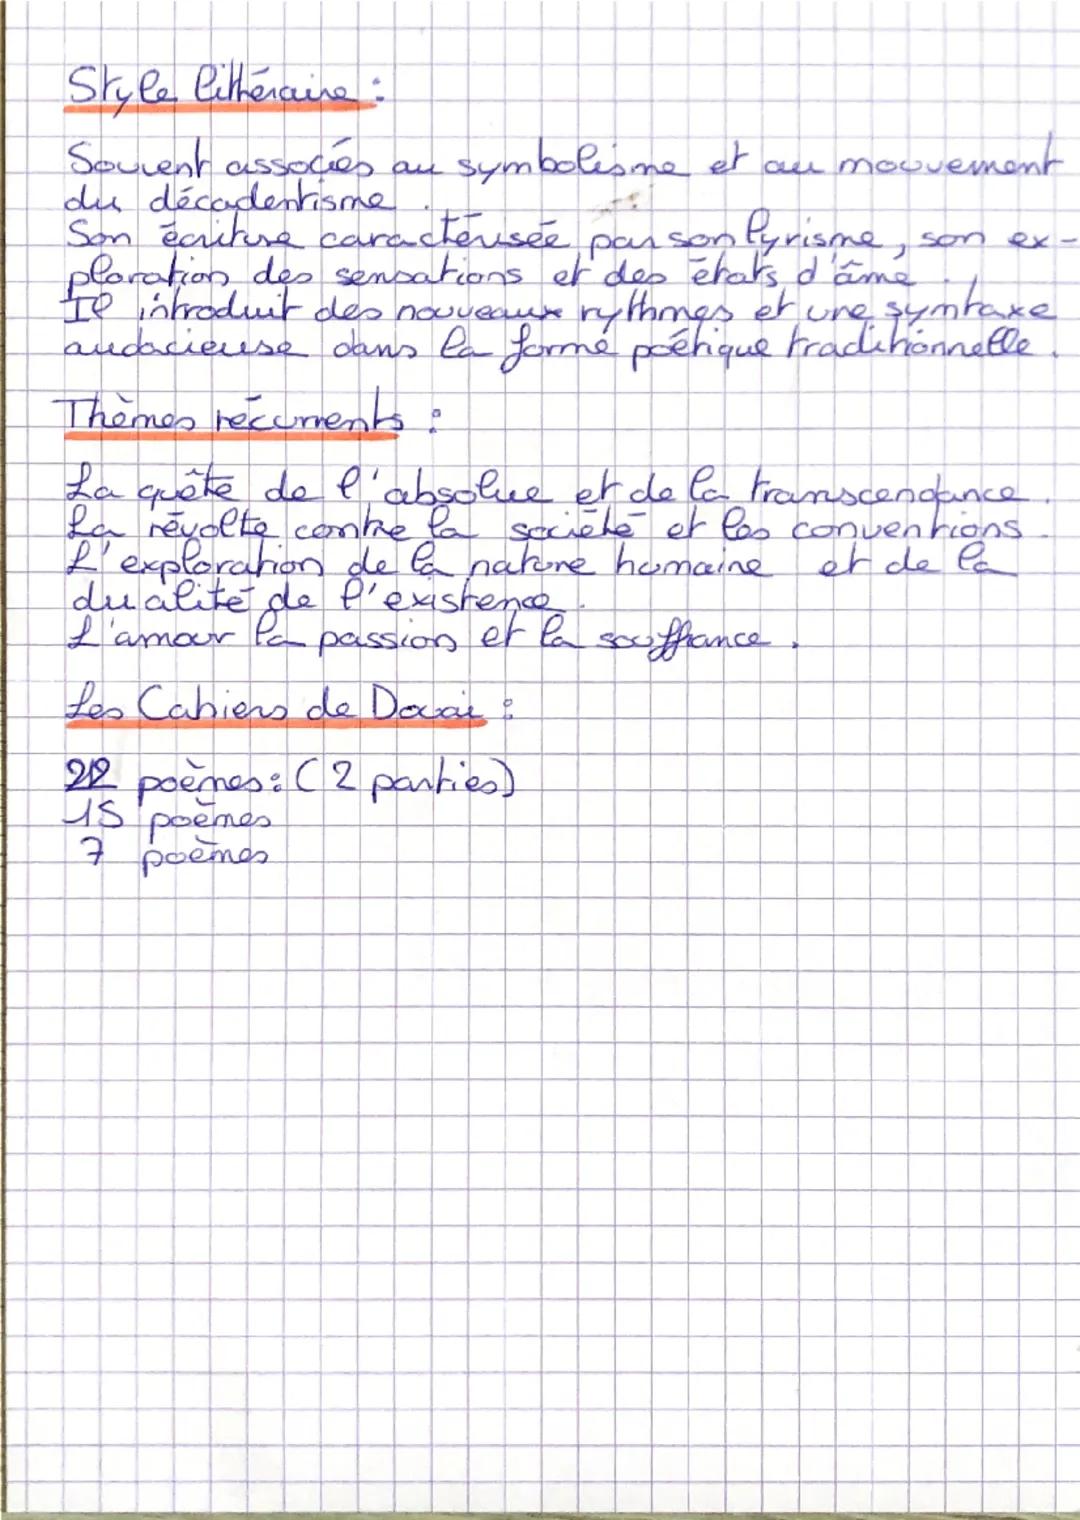 Style littéraire :
Souvent associés au symbolisme et au mouvement
du décadentisme .
Son écriture caractérisée par son lyrisme, son ex-
ploration des sensations et des états d'âme .
Il introduit des nouveaux rythmes et une symtaxe
audacieuse dans la forme poétique traditionnelle .
Thèmes récurrents :
La quête de l'absolue et de la transcendance .
La révolte contre la société et les conventions .
L'exploration de la nature humaine et de la
dualité de l'existence .
L'amour la passion et la souffrance .
Les Cahiers de Douai :
22 poèmes : ( 2 parties )
15 poèmes
7 poèmes